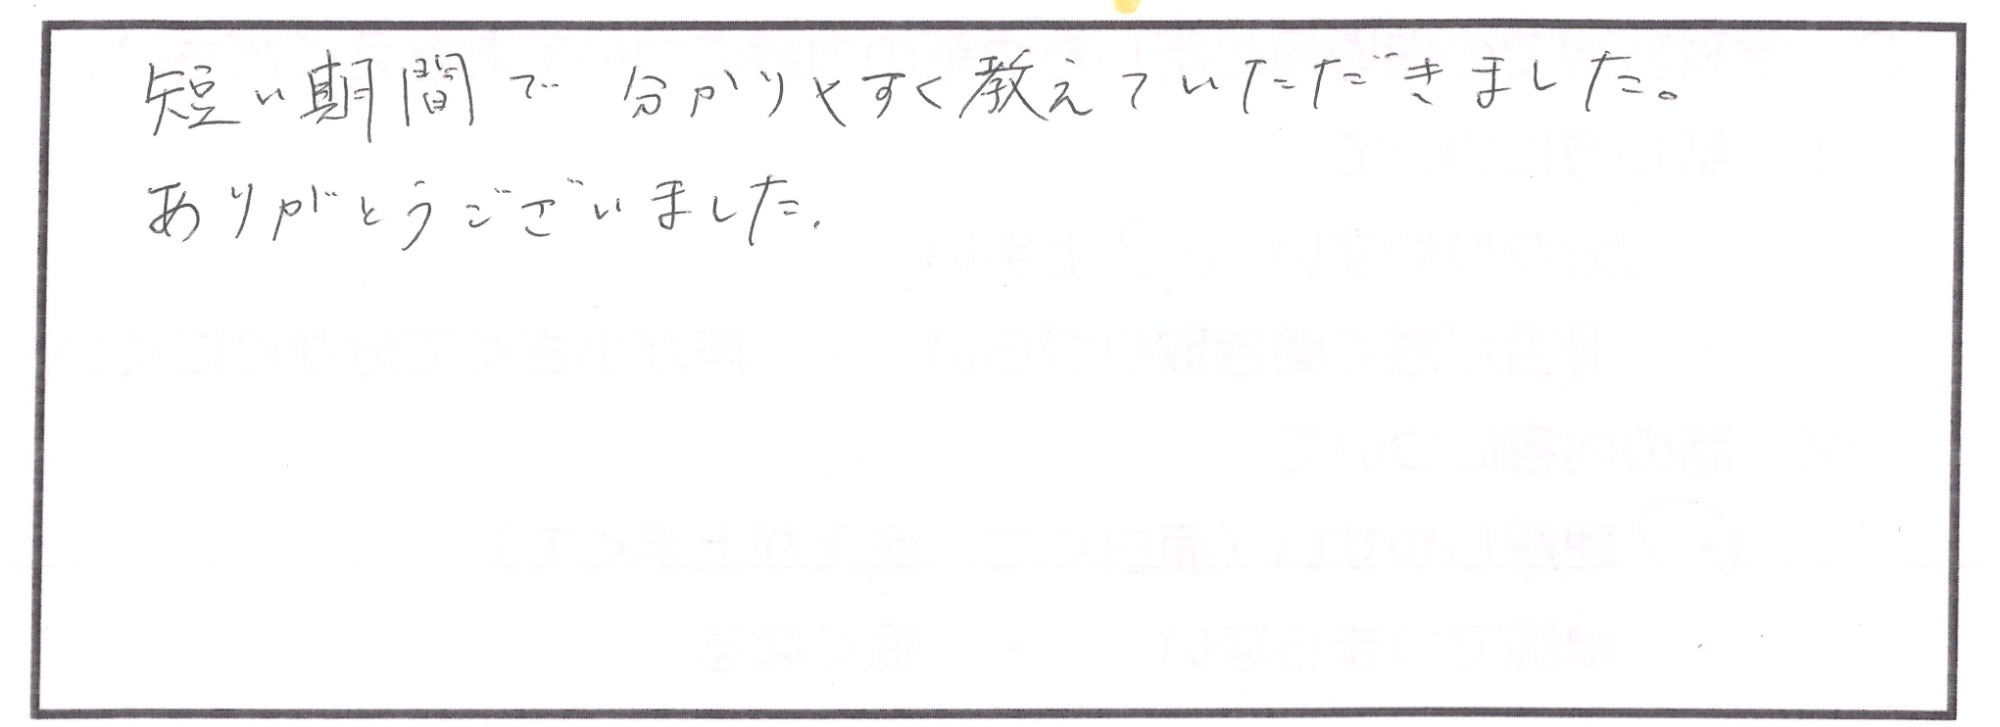 短い期間で 分かりやすく教えていただきました。
ありがとうございました.